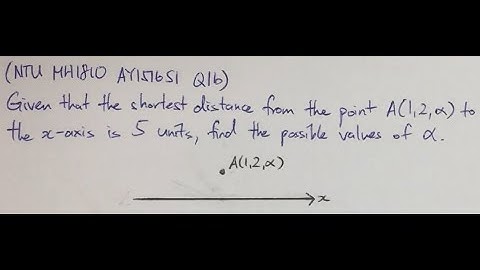 (NTU MH1810 AY1516S1 Q1b)
Given that the shortest distance from the point A(1,2,α) to
the x-axis is 5 units, find the possible values of α.
A(1,2,α)
x